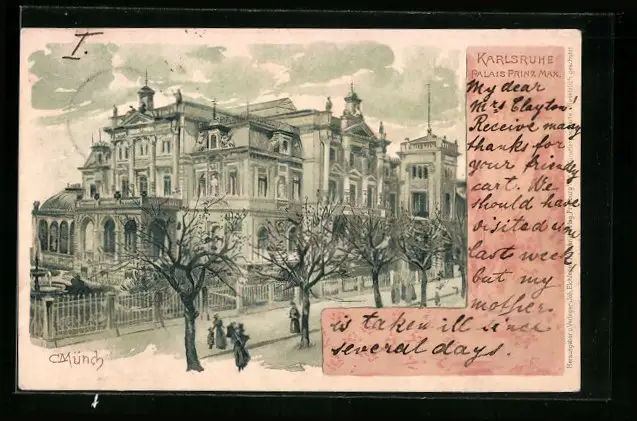 I.
KARLSRUHE
PALAIS PRINZ MAX.
My dear
Mrs Clayton!
Receive many
thanks for
your friendly
cart. We
should have
visited you
last week
but my
mother
is taken ill since
several days.
C Münch